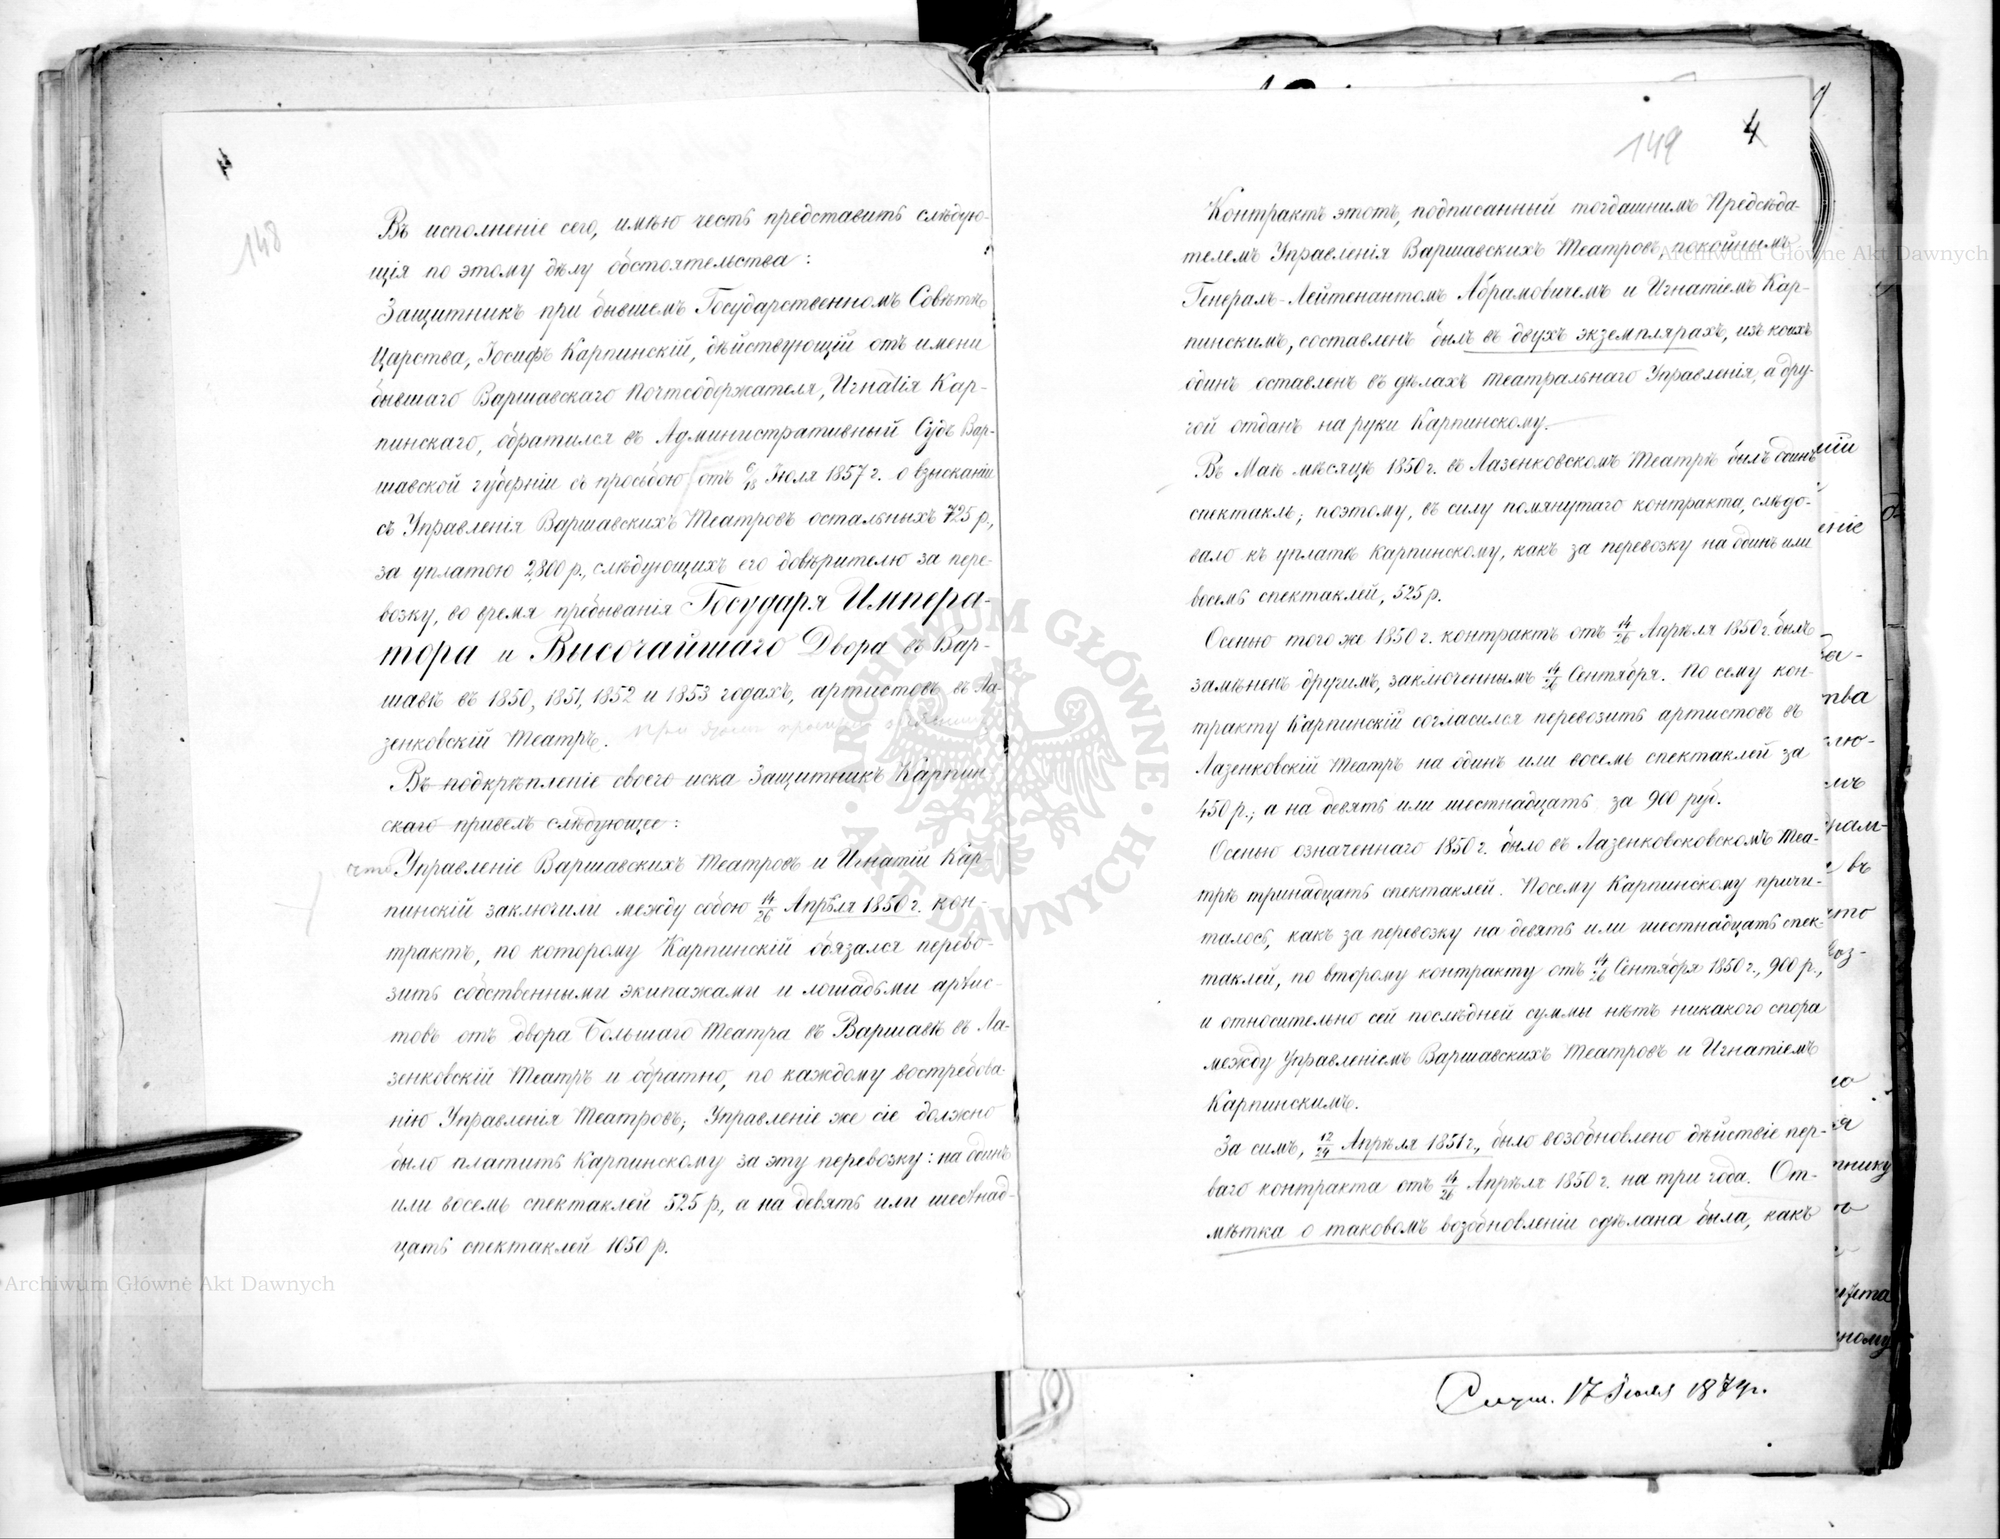 4
148
Въ исполненіе сего, имѣю честь представить слѣдую-
щія по этому дѣлу обстоятельства:
Защитникъ при бывшемъ Государственномъ Совѣтѣ
Царства, Іосифъ Карпинскій, дѣйствующій отъ имени
бывшаго Варшавскаго Почтсодержателя, Игнатія Кар-
пинскаго, обратился въ Административный Судъ Вар-
шавской губерніи съ просьбою отъ 6/18 Іюля 1857 г. о взысканіи
съ Управленія Варшавскихъ Театровъ остальныхъ 725 р.,
за уплатою 2,800 р., слѣдующихъ его довѣрителю за пере-
возку, во время пребыванія Государя Импера-
тора и Высочайшаго Двора въ Вар-
шавѣ въ 1850, 1851, 1852 и 1853 годахъ, артистовъ въ Ла-
зенковскій Театръ. При
Въ подкрѣпленіе своего иска Защитникъ Карпин-
скаго привелъ слѣдующее:
что Управленіе Варшавскихъ Театровъ и Игнатій Кар-
пинскій заключили между собою 14/26 Апрѣля 1850 г. кон-
трактъ, по которому Карпинскій обязался перево-
зить собственными экипажами и лошадьми артис-
товъ отъ двора Большаго Театра въ Варшавѣ въ Ла-
зенковскій Театръ и обратно, по каждому востребова-
нію Управленія Театровъ; Управленіе же сіе должно
было платить Карпинскому за эту перевозку: на одинъ
или восемь спектаклей 525 р., а на девять или шестнад-
цать спектаклей 1050 р.
149
4
Контрактъ этотъ, подписанный тогдашнимъ Предсѣда-
телемъ Управленія Варшавскихъ Театровъ, покойнымъ
Генералъ-Лейтенантомъ Абрамовичемъ и Игнатіемъ Кар-
пинскимъ, составленъ былъ въ двухъ экземплярахъ, изъ коихъ
одинъ оставленъ въ дѣлахъ театральнаго Управленія, а дру-
гой отданъ на руки Карпинскому.
Въ Маѣ мѣсяцѣ 1850 г. въ Лазенковскомъ Театрѣ былъ одинъ
спектакль; поэтому, въ силу помянутаго контракта, слѣдо-
вало къ уплатѣ Карпинскому, какъ за перевозку на одинъ или
восемь спектаклей, 525 р.
Осенью того же 1850 г. контрактъ отъ 14/26 Апрѣля 1850 г. былъ
замѣненъ другимъ, заключеннымъ 14/26 Сентября. По сему кон-
тракту Карпинскій согласился перевозить артистовъ въ
Лазенковскій Театръ на одинъ или восемь спектаклей за
450 р.; а на девять или шестнадцать за 900 руб.
Осенью означеннаго 1850 г. было въ Лазенковсковскомъ Теа-
трѣ тринадцать спектаклей. Посему Карпинскому причи-
талось, какъ за перевозку на девять или шестнадцать спек-
таклей, по второму контракту отъ 14/26 Сентября 1850 г., 900 р.,
и относительно сей послѣдней суммы нѣтъ никакого спора
между Управленіемъ Варшавскихъ Театровъ и Игнатіемъ
Карпинскимъ.
За симъ, 12/24 Апрѣля 1851 г., было возобновлено дѣйствіе пер-
ваго контракта отъ 14/26 Апрѣля 1850 г. на три года. От-
мѣтка о таковомъ возобновленіи сдѣлана была, какъ
17 Іюля 187
Archiwum Główne Akt Dawnych
Archiwum Główne Akt Dawnych
ARCHIWUM GŁÓWNE
AKT DAWNYCH